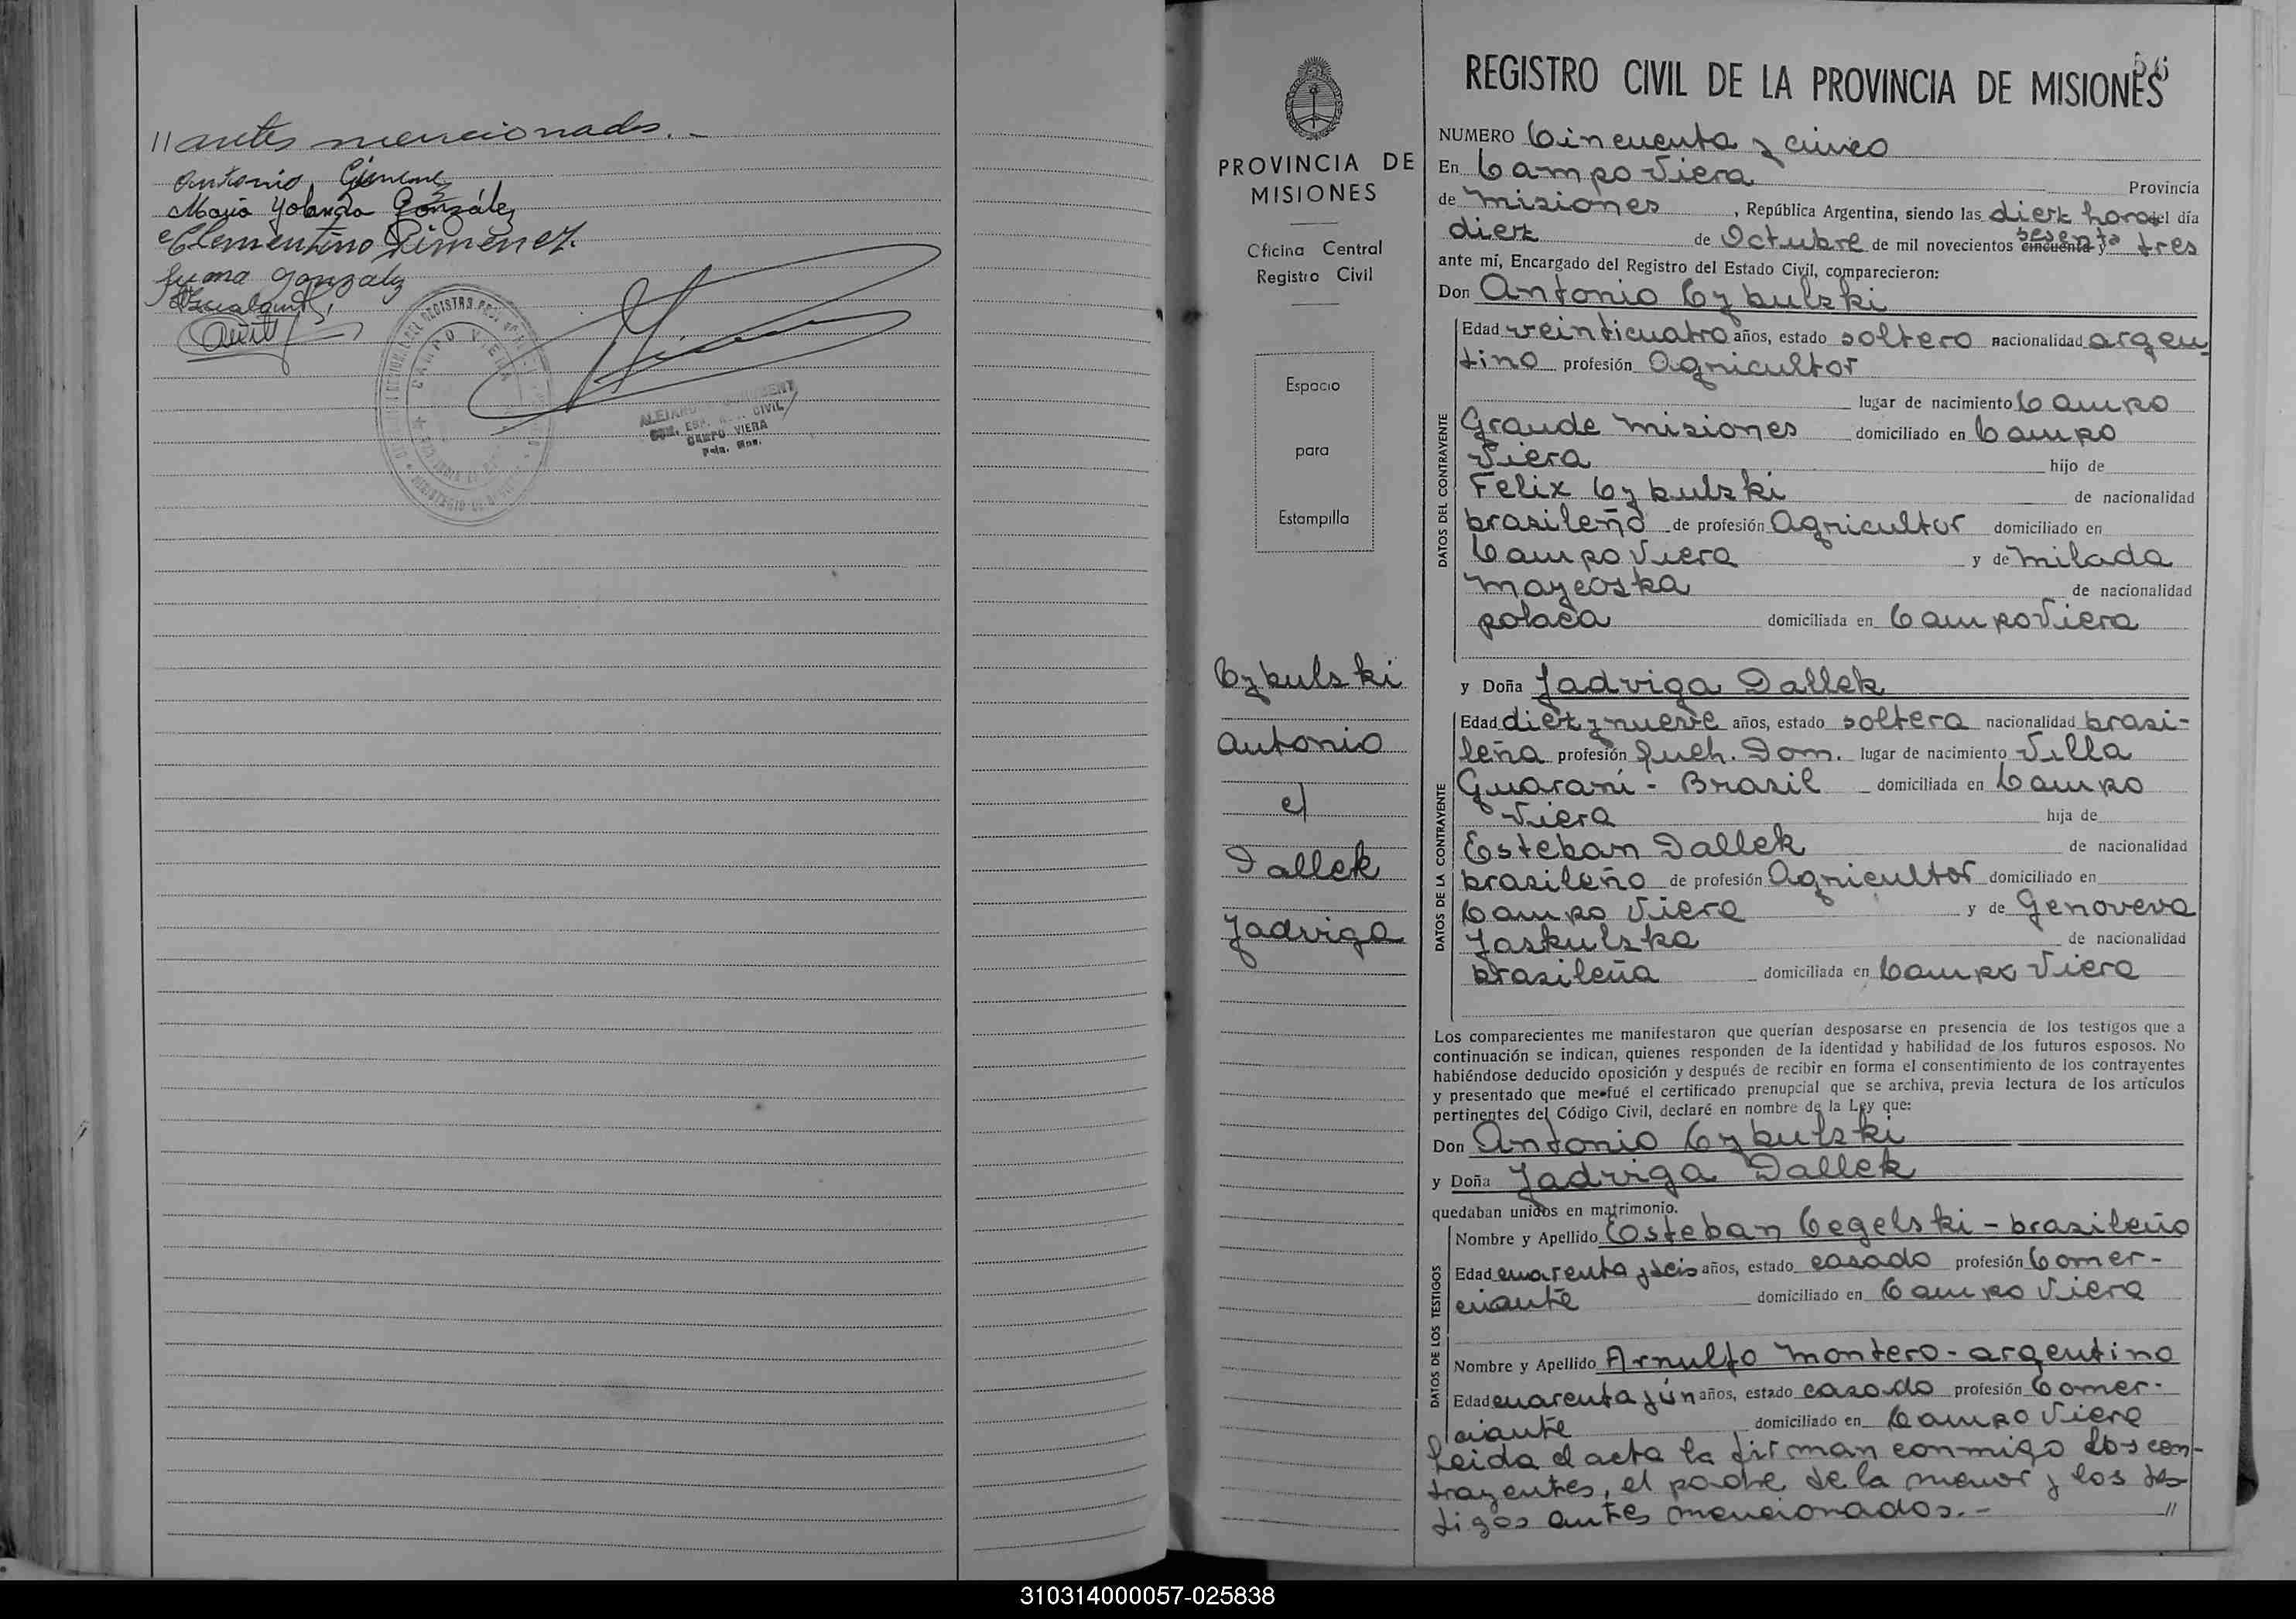 // antes mencionados. -
Antonio Gimenez
María Yolanda González
Clementino Gimenez.
Juana Gonzalez
CAMPO VIERA
CIVIL
CAMPO VIERA
Pcia. Mnes.
56
REGISTRO CIVIL DE LA PROVINCIA DE MISIONES
PROVINCIA DE
MISIONES
Oficina Central
Registro Civil
Espacio
para
Estampilla
Cybulski
Antonio
c/
Dallek
Jadviga
NUMERO Cincuenta y cinco
En Campo Viera Provincia
de Misiones , República Argentina, siendo las diez horas del día
diez de Octubre de mil novecientos cincuenta y sesenta tres
ante mí, Encargado del Registro del Estado Civil, comparecieron:
Don Antonio Cybulski
DATOS DEL CONTRAYENTE
Edad veinticuatro años, estado soltero nacionalidad argen-
tino profesión Agricultor
lugar de nacimiento Campo
Grande Misiones domiciliado en Campo
Viera hijo de
Felix Cybulski de nacionalidad
brasileño de profesión Agricultor domiciliado en
Campo Viera y de Milada
Maycoska de nacionalidad
polaca domiciliada en Campo Viera
y Doña Jadviga Dallek
DATOS DE LA CONTRAYENTE
Edad diez y nueve años, estado soltera nacionalidad brasi-
leña profesión Queh. Dom. lugar de nacimiento Villa
Guaraní - Brasil domiciliada en Campo
Viera hija de
Esteban Dallek de nacionalidad
brasileño de profesión Agricultor domiciliado en
Campo Viera y de Genoveva
Jaskulska de nacionalidad
brasileña domiciliada en Campo Viera
Los comparecientes me manifestaron que querían desposarse en presencia de los testigos que a
continuación se indican, quienes responden de la identidad y habilidad de los futuros esposos. No
habiéndose deducido oposición y después de recibir en forma el consentimiento de los contrayentes
y presentado que me fué el certificado prenupcial que se archiva, previa lectura de los artículos
pertinentes del Código Civil, declaré en nombre de la Ley que:
Don Antonio Cybulski
y Doña Jadviga Dallek
quedaban unidos en matrimonio.
DATOS DE LOS TESTIGOS
Nombre y Apellido Esteban Cegelski - brasileño
Edad cuarenta y seis años, estado casado profesión Comer-
ciante domiciliado en Campo Viera
Nombre y Apellido Arnulfo Montero - argentino
Edad cuarenta y ún años, estado casado profesión Comer-
ciante domiciliado en Campo Viera
Leida el acta la firman conmigo los con-
trayentes, el padre de la menor y los tes-
tigos antes mencionados. - //
310314000057-025838